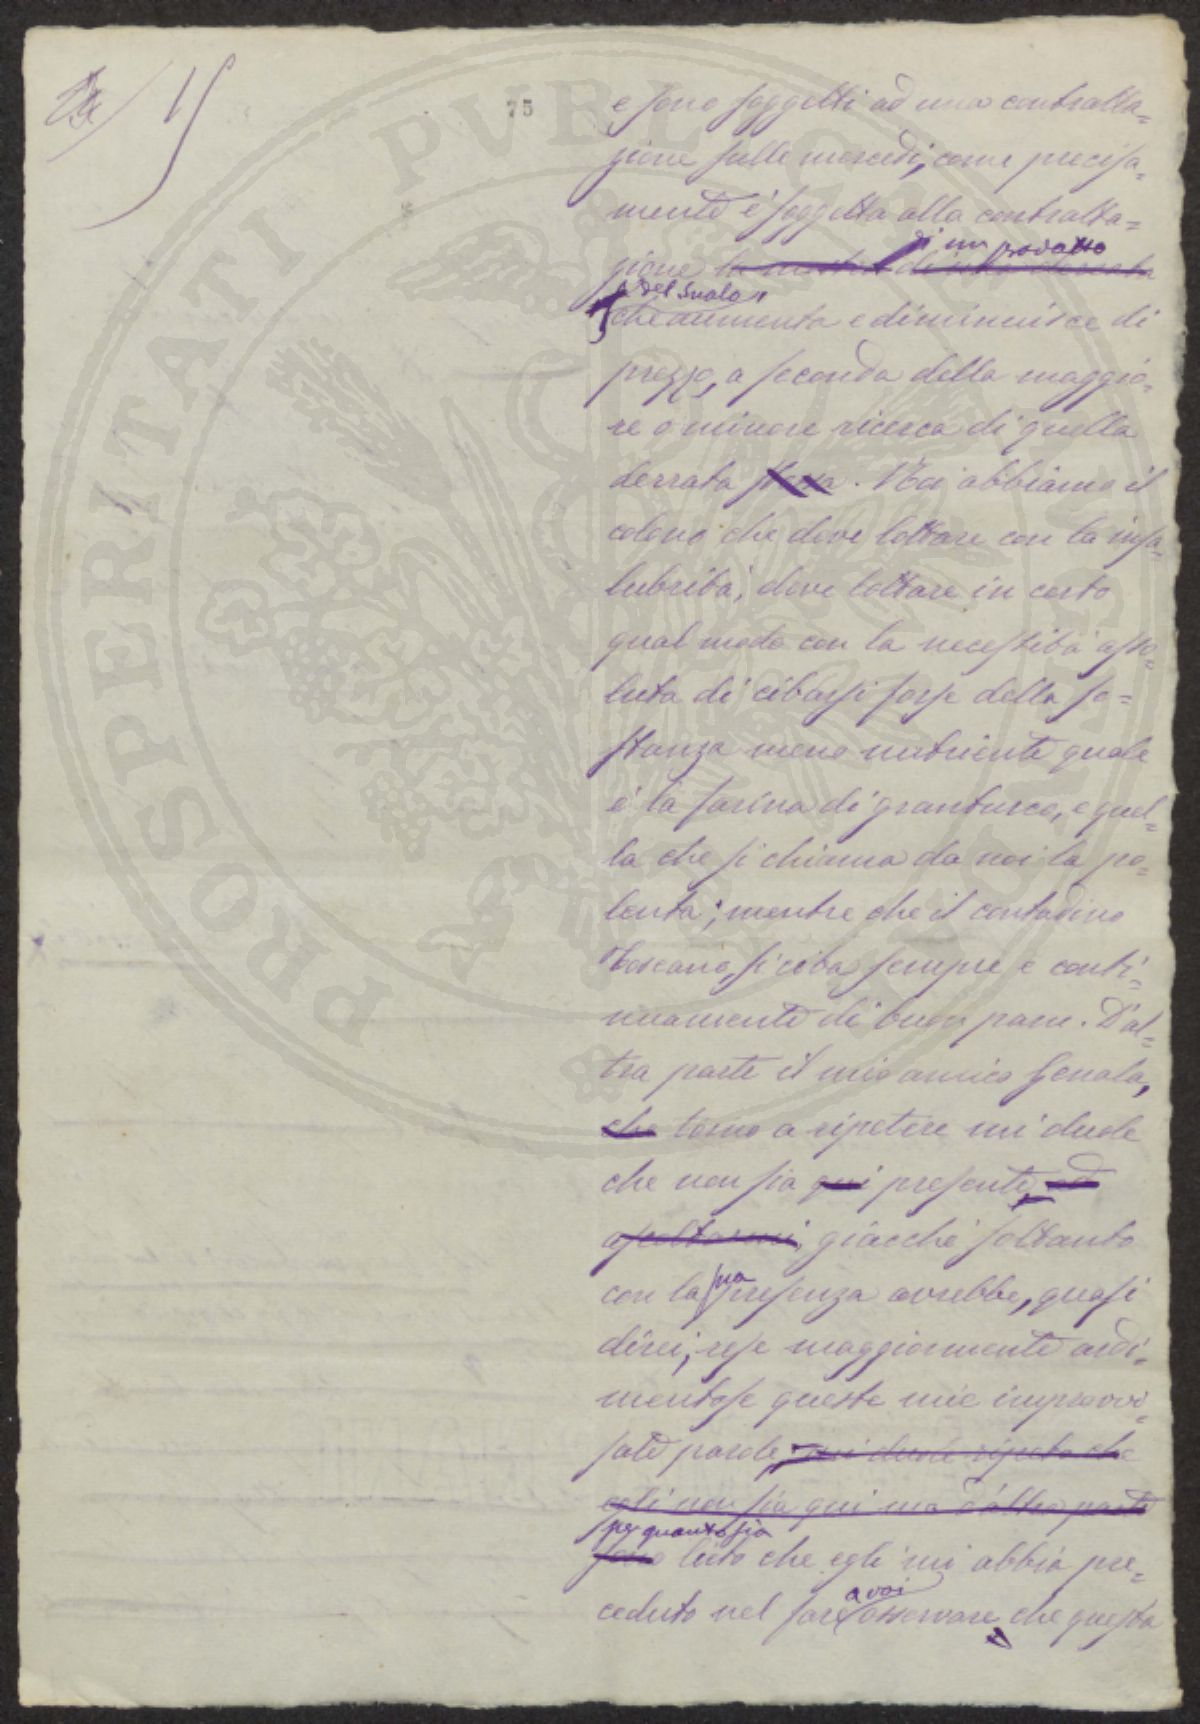 15
75
e sono soggetti ad una contratta=
zione sulle mercedi, come precisa=
mente è soggetta alla contratta=
di un prodotto
zione
del suolo
che aumenta e diminuisce di
prezzo, a seconda della maggio=
re o minore ricerca di quella
derrata stessa. Noi abbiamo il
colono che deve lottare con la insa=
lubrità, deve lottare in certo
qual modo con la necessità asso=
luta di cibarsi forse della so=
stanza meno nutriente quale
è la farina di granturco, e quel=
la che si chiama da noi la po=
lenta; mentre che il contadino
Toscano, si ciba sempre e conti=
nuamente di buon pane. D'al=
tra parte il mio amico Genala,
che torno a ripetere mi duole
che non sia qui presente, ad
ascoltarmi, giacchè soltanto
sua
con la presenza avrebbe, quasi
direi, rese maggiormente ardi=
mentose queste mie improvvi=
sate parole, mi duole ripeto che
egli non sia qui ma d'altra parte
per quanto sia
sono lieto che egli mi abbia pre=
a voi
ceduto nel fare osservare, che questa
PROSPERITATI PVBLICAE